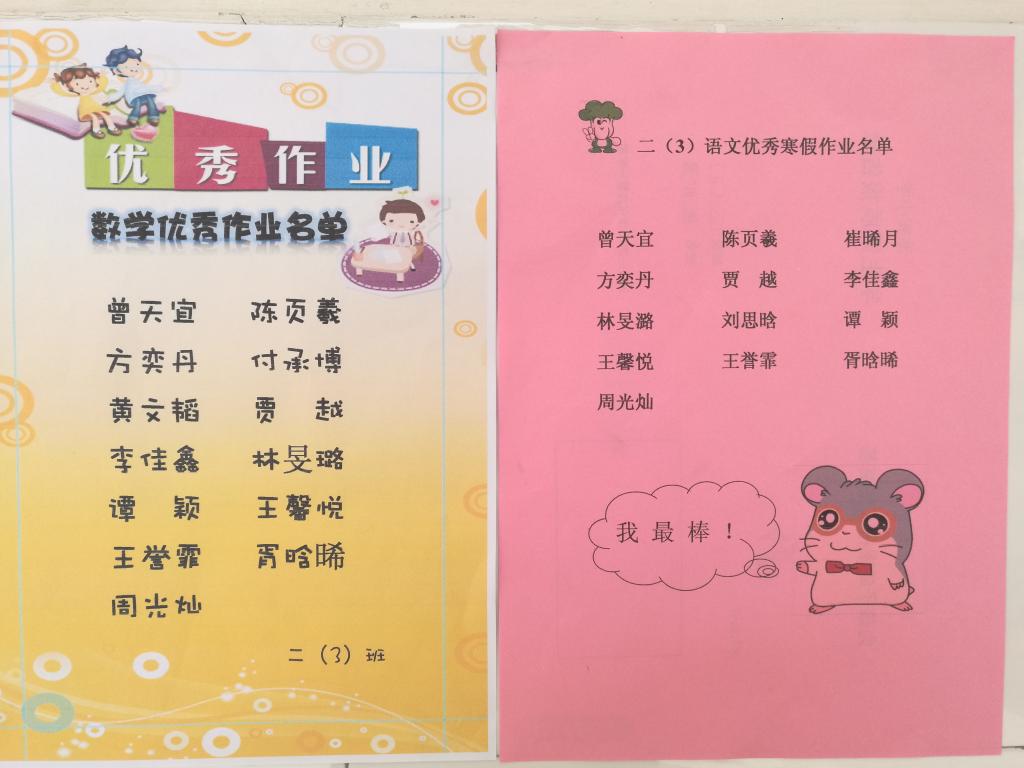 优秀作业
数学优秀作业名单
曾天宜 陈页羲
方奕丹 付承博
黄文韬 贾 越
李佳鑫 林旻璐
谭 颖 王馨悦
王誉霏 胥晗晞
周光灿
二（3）班
二（3）语文优秀寒假作业名单
曾天宜 陈页羲 崔晞月
方奕丹 贾 越 李佳鑫
林旻潞 刘思晗 谭 颖
王馨悦 王誉霏 胥晗晞
周光灿
我 最 棒 ！